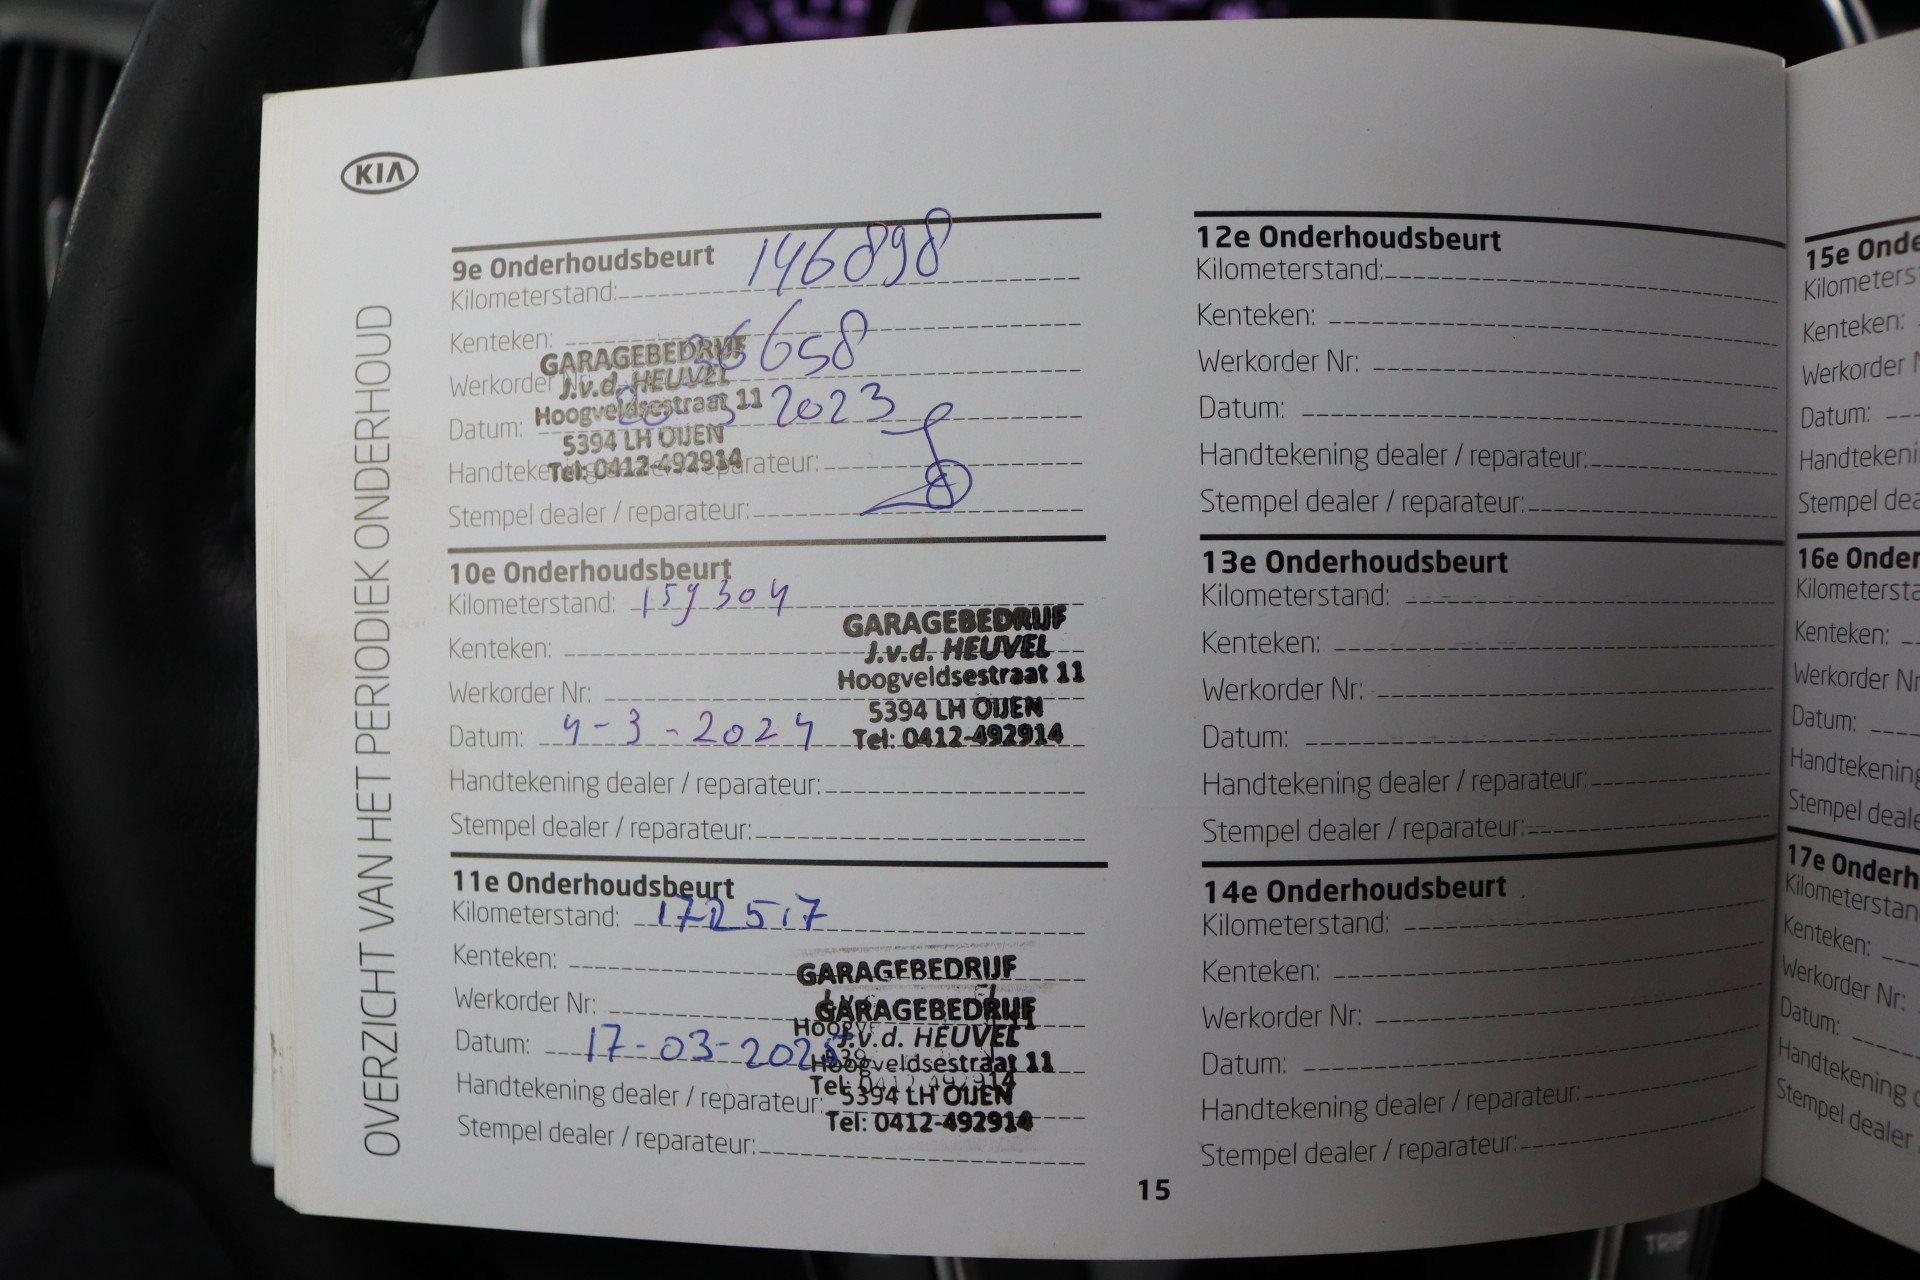 KIA
OVERZICHT VAN HET PERIODIEK ONDERHOUD
9e Onderhoudsbeurt
Kilometerstand: 146898
Kenteken:
Werkorder Nr: 36658
Datum: 20-3-2023
Handtekening dealer / reparateur:
Stempel dealer / reparateur:
GARAGEBEDRIJF
J.v.d. HEUVEL
Hoogveldsestraat 11
5394 LH OIJEN
Tel: 0412-492914
10e Onderhoudsbeurt
Kilometerstand: 159304
Kenteken:
Werkorder Nr:
Datum: 4-3-2024
Handtekening dealer / reparateur:
Stempel dealer / reparateur:
GARAGEBEDRIJF
J.v.d. HEUVEL
Hoogveldsestraat 11
5394 LH OIJEN
Tel: 0412-492914
11e Onderhoudsbeurt
Kilometerstand: 172517
Kenteken:
Werkorder Nr:
Datum: 17-03-2025
Handtekening dealer / reparateur:
Stempel dealer / reparateur:
GARAGEBEDRIJF
GARAGEBEDRIJF
J.v.d. HEUVEL
Hoogveldsestraat 11
Tel: 0412-492914
5394 LH OIJEN
Tel: 0412-492914
12e Onderhoudsbeurt
Kilometerstand:
Kenteken:
Werkorder Nr:
Datum:
Handtekening dealer / reparateur:
Stempel dealer / reparateur:
13e Onderhoudsbeurt
Kilometerstand:
Kenteken:
Werkorder Nr:
Datum:
Handtekening dealer / reparateur:
Stempel dealer / reparateur:
14e Onderhoudsbeurt
Kilometerstand:
Kenteken:
Werkorder Nr:
Datum:
Handtekening dealer / reparateur:
Stempel dealer / reparateur:
15
15e Onde
Kilometers
Kenteken:
Werkorder N
Datum:
Handtekeni
Stempel dea
16e Onder
Kilometersta
Kenteken:
Werkorder Nr
Datum:
Handtekening
Stempel deale
17e Onderh
Kilometerstan
Kenteken:
Werkorder Nr:
Datum:
Handtekening d
Stempel dealer
TRIP